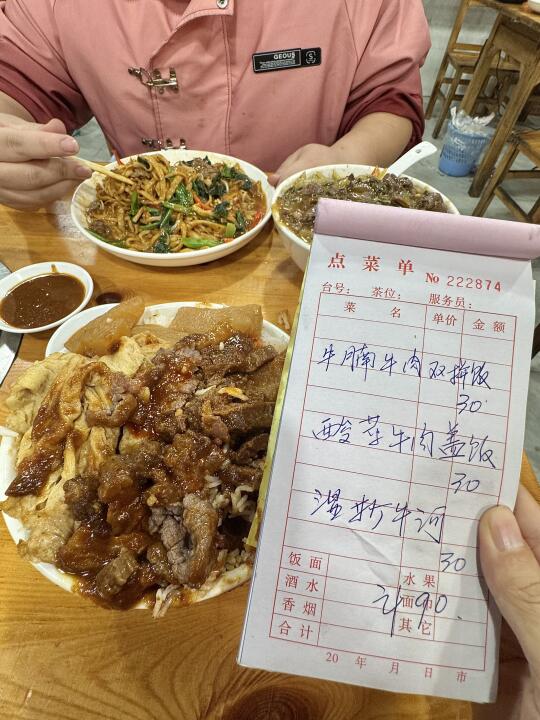 GEOUS
点菜单 No 222874
台号： 茶位： 服务员：
菜 名 单价 金额
牛腩牛肉双拼饭
30
酸菜牛肉盖饭
30
湿炒牛河
30
饭面 水果
酒水 面巾
计90.
香烟 其它
合计
20 年 月 日 市